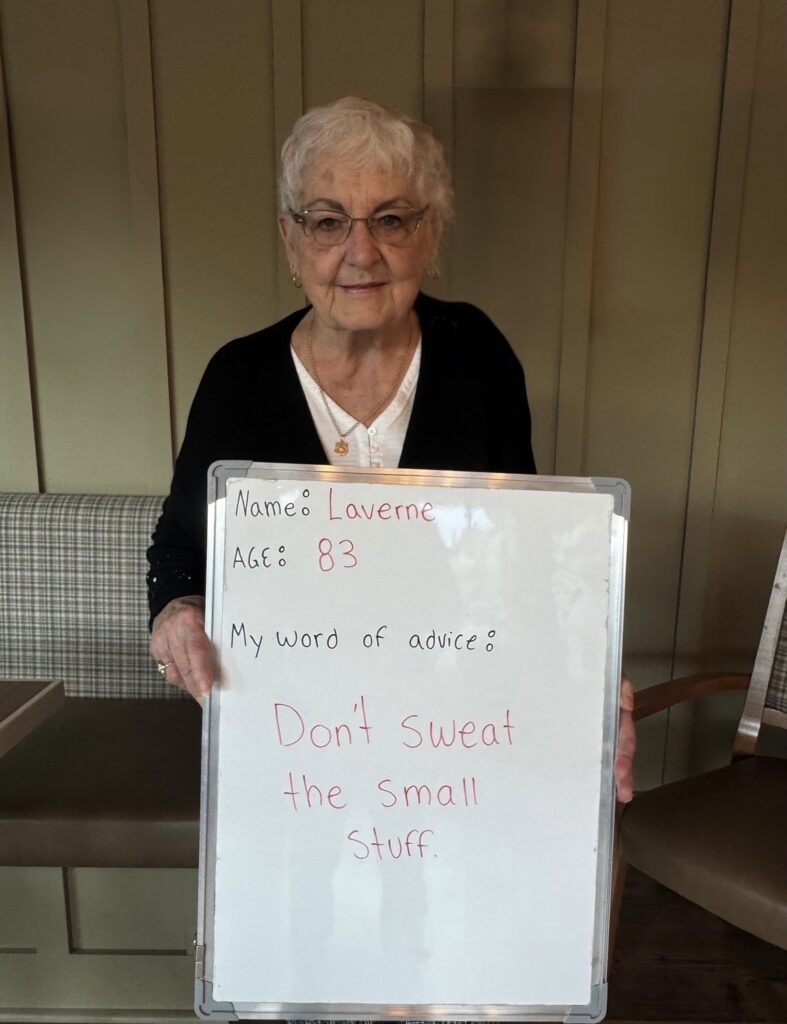 Name: Laverne
AGE: 83
My word of advice:
Don't sweat
the small
stuff.